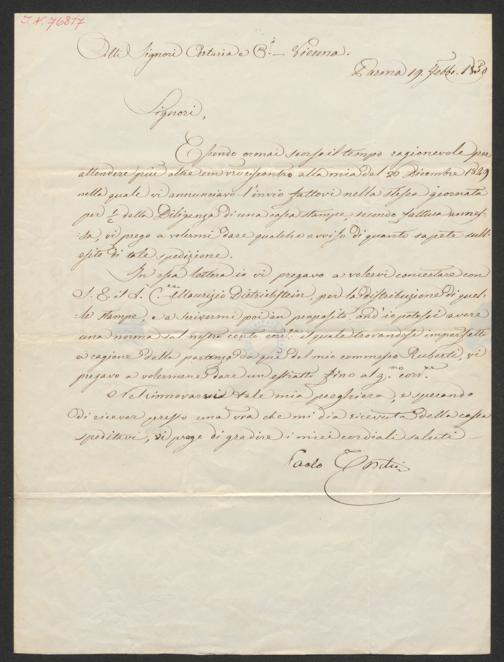 I.N. 76817
Alli Signori Artaria e C.ª – Vienna.
Parma 19. Febbo. 1850
Signori,
Essendo ormai scorso il tempo ragionevole per
attendere più oltre un vro riscontro alla mia del 20 Dicembre 1849
nella quale vi annunciavo l'invio fattovi nella stessa giornata
per 1/c della Diligenza di una cassa stampe, secondo fattura annes-
sa, vi prego a volermi dare qualche avviso di quanto sapete sull'
esito di tale spedizione.
In essa lettera io vi pregavo a volervi concertare con
S. E. il S. C. Maurizio Dietrichstein, per la distribuzione di quel-
le stampe, e a scrivermi poi in proposito, ond'io potessi avere
una norma sul nostro conto il quale trovandosi imperfetto
a cagione della partenza da qui del mio commesso Ruberti, vi
pregavo a volermene dare un estratto fino al 31.mo corr.
Nel rinnovarvi tale mia preghiera, e sperando
di ricever presso una vra che mi dia ricevuta della cassa
speditavi, vi prego di gradire i miei cordiali saluti
Paolo Toschi